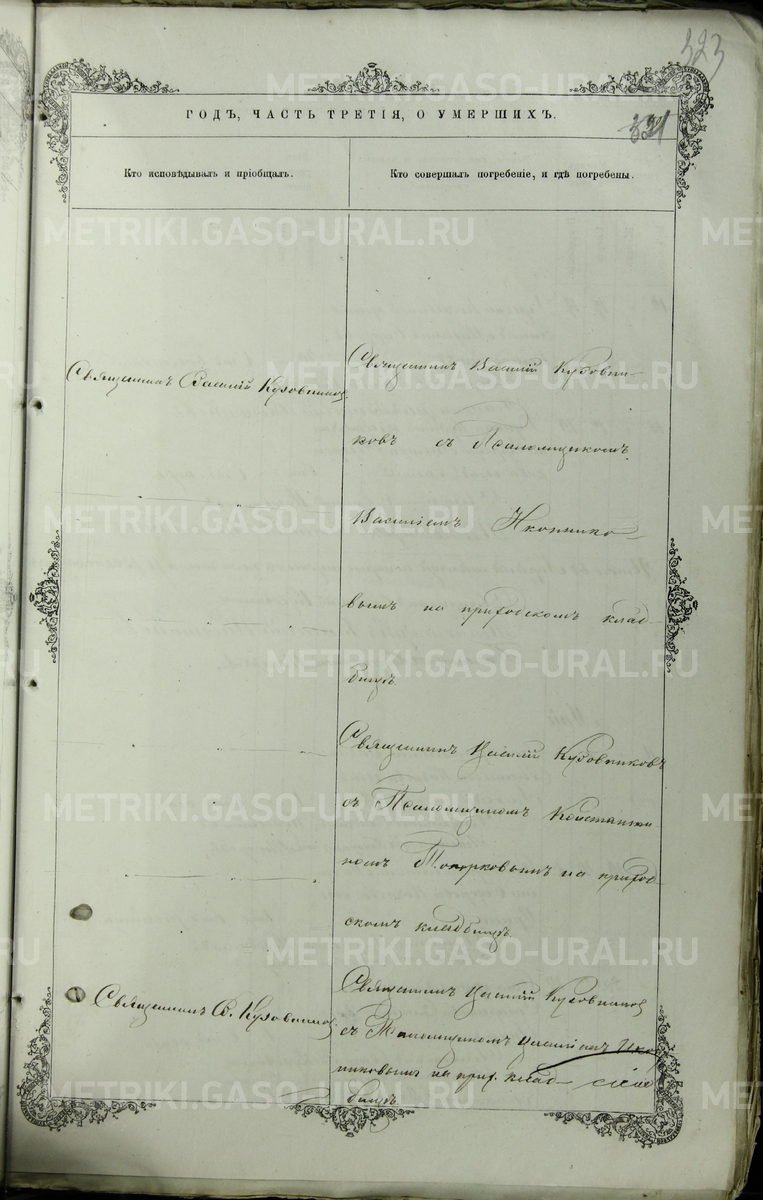 323
321
ГОДЪ, ЧАСТЬ ТРЕТІЯ, О УМЕРШИХЪ.
Кто исповѣдывалъ и пріобщалъ.
Кто совершалъ погребеніе, и гдѣ погребены.
Священникъ Василій Кузовников
Священникъ Василій Кузовни-
ковъ съ Псаломщикомъ
Василіемъ Иконнико-
вымъ на приходскомъ клад-
бищѣ
Священникъ Василій Кузовниковъ
съ Псаломщикомъ Константи
номъ на приход
скомъ кладбищѣ
Священникъ В. Кузовников
Священникъ Василій Кузовников
съ Псаломщикомъ Василіемъ Ико
никовымъ на прих. клад-
бищѣ
METRIKI.GASO-URAL.RU